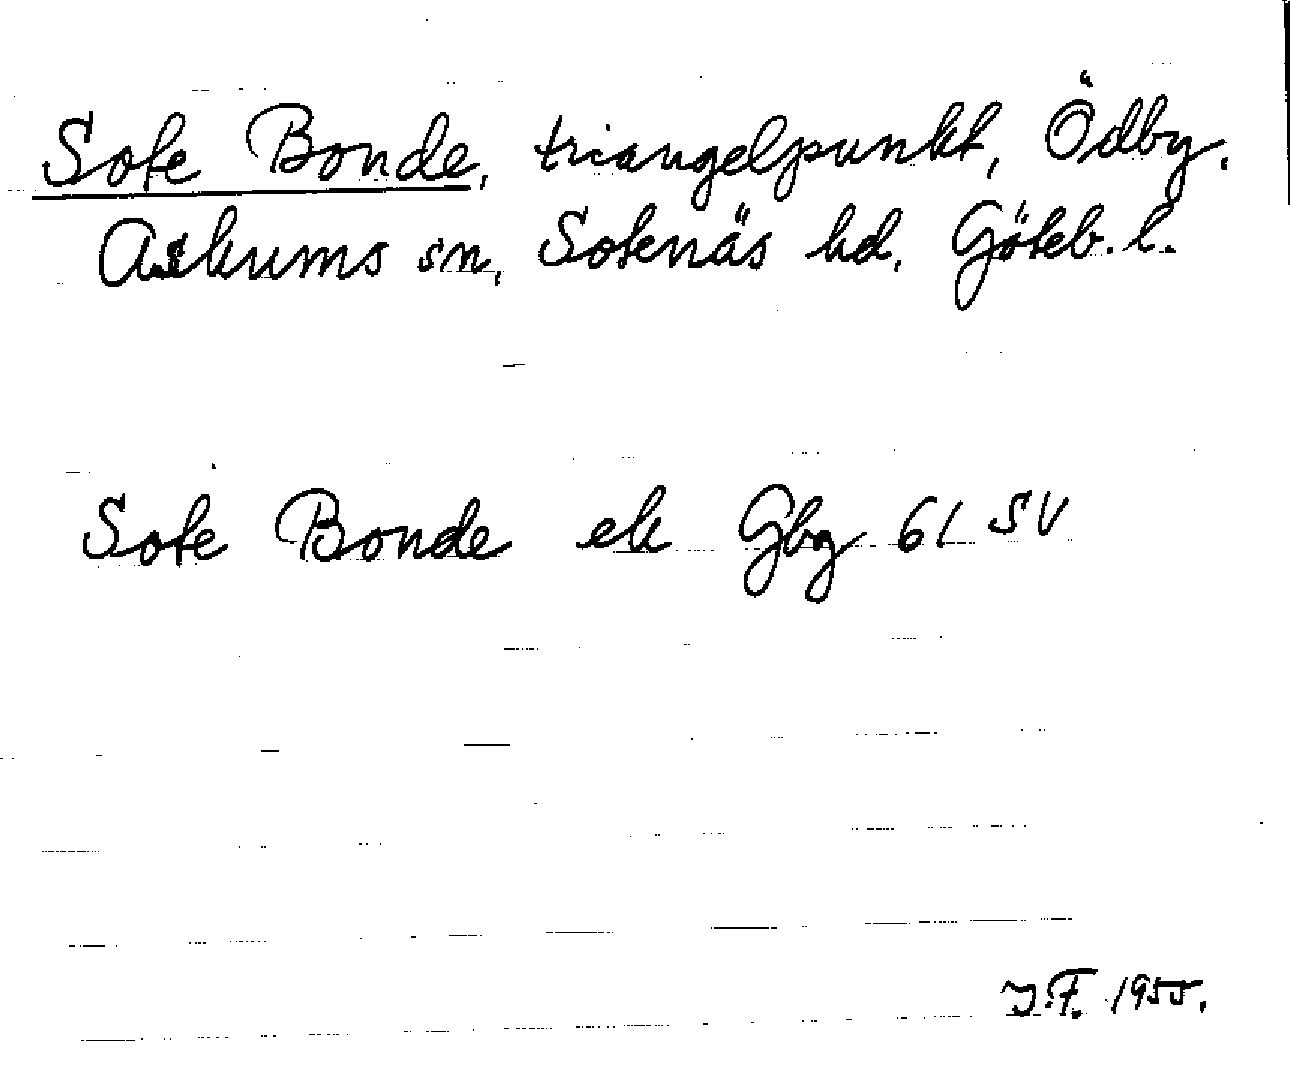 Sote Bonde, triangelpunkt, Ödby.
Askums sn, Sotenäs hd. Göteb. l.
Sote Bonde ek Gbg 61 SV
J.F. 1955.